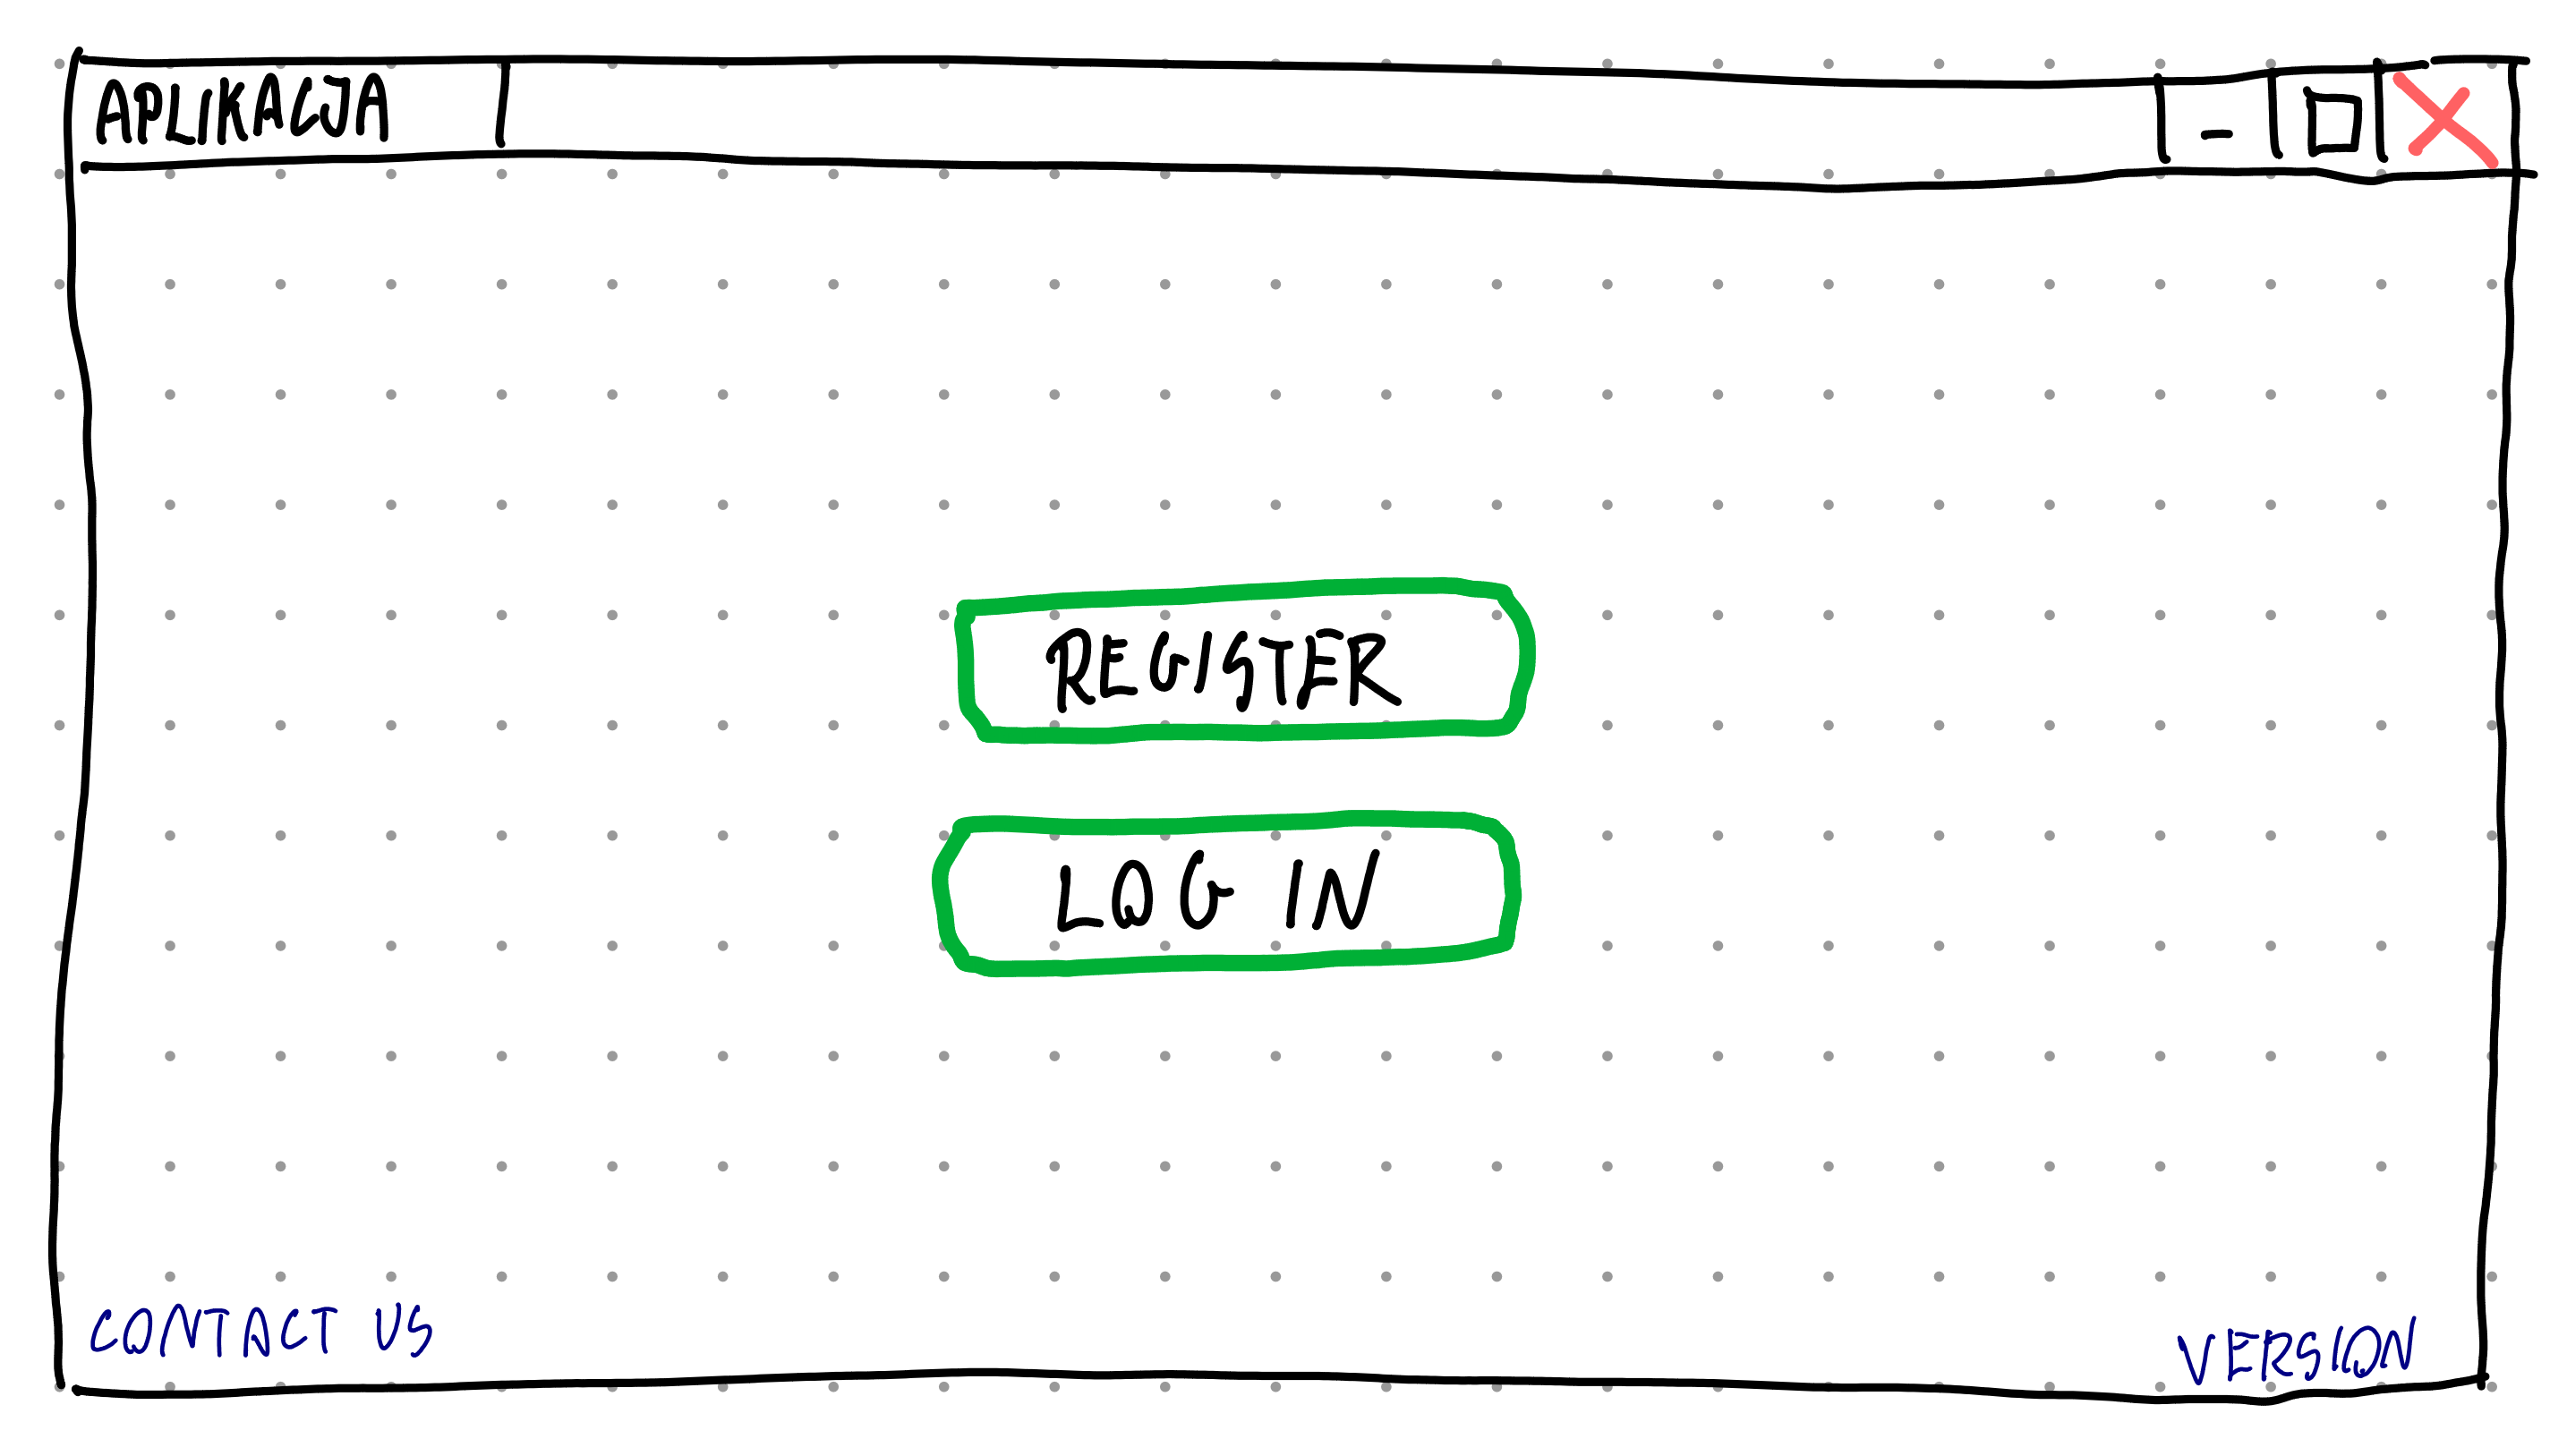 APLIKACJA
REGISTER
LOG IN
CONTACT US
VERSION